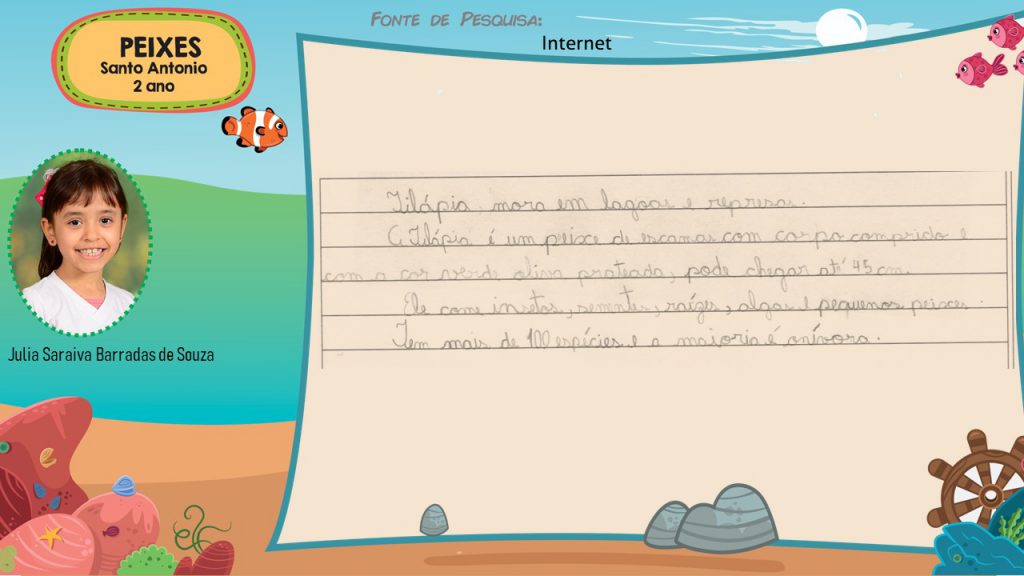 PEIXES
Santo Antonio
2 ano
FONTE DE PESQUISA:
Internet
Tilápia mora em lagoas e represas.
A Tilápia é um peixe de escamas com corpo comprido e
com a cor verde oliva prateada, pode chegar até 45 cm.
Ele come insetos, semntes, raízes, algas e pequenos peixes.
Tem mais de 100 espécies e a maioria é onívora.
Julia Saraiva Barradas de Souza